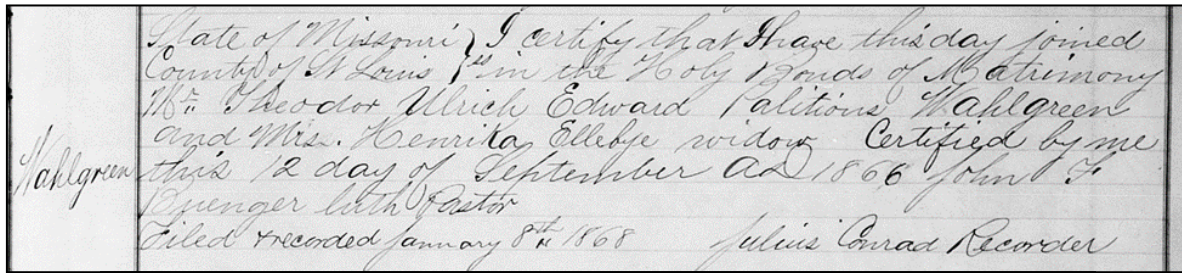 State of Missouri } I certify that I have this day joined
County of St Louis } ss in the Holy Bonds of Matrimony
Mr. Theodor Ulrich Edward Palitious Wahlgreen
and Mis. Henrika Ellebye widow Certified by me
Wahlgreen
this 12 day of September AD 1866 John F
Buenger luth Pastor
Filed & recorded January 8th 1868 Julius Conrad Recorder